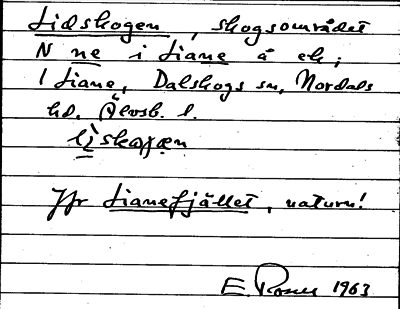 Lidskogen, skogsområdet
N ne i Liane å ek;
1 Liane, Dalskogs sn, Nordals
hd. Älvsb. l.
Jfr Lianefjället, naturn!
E. 1963